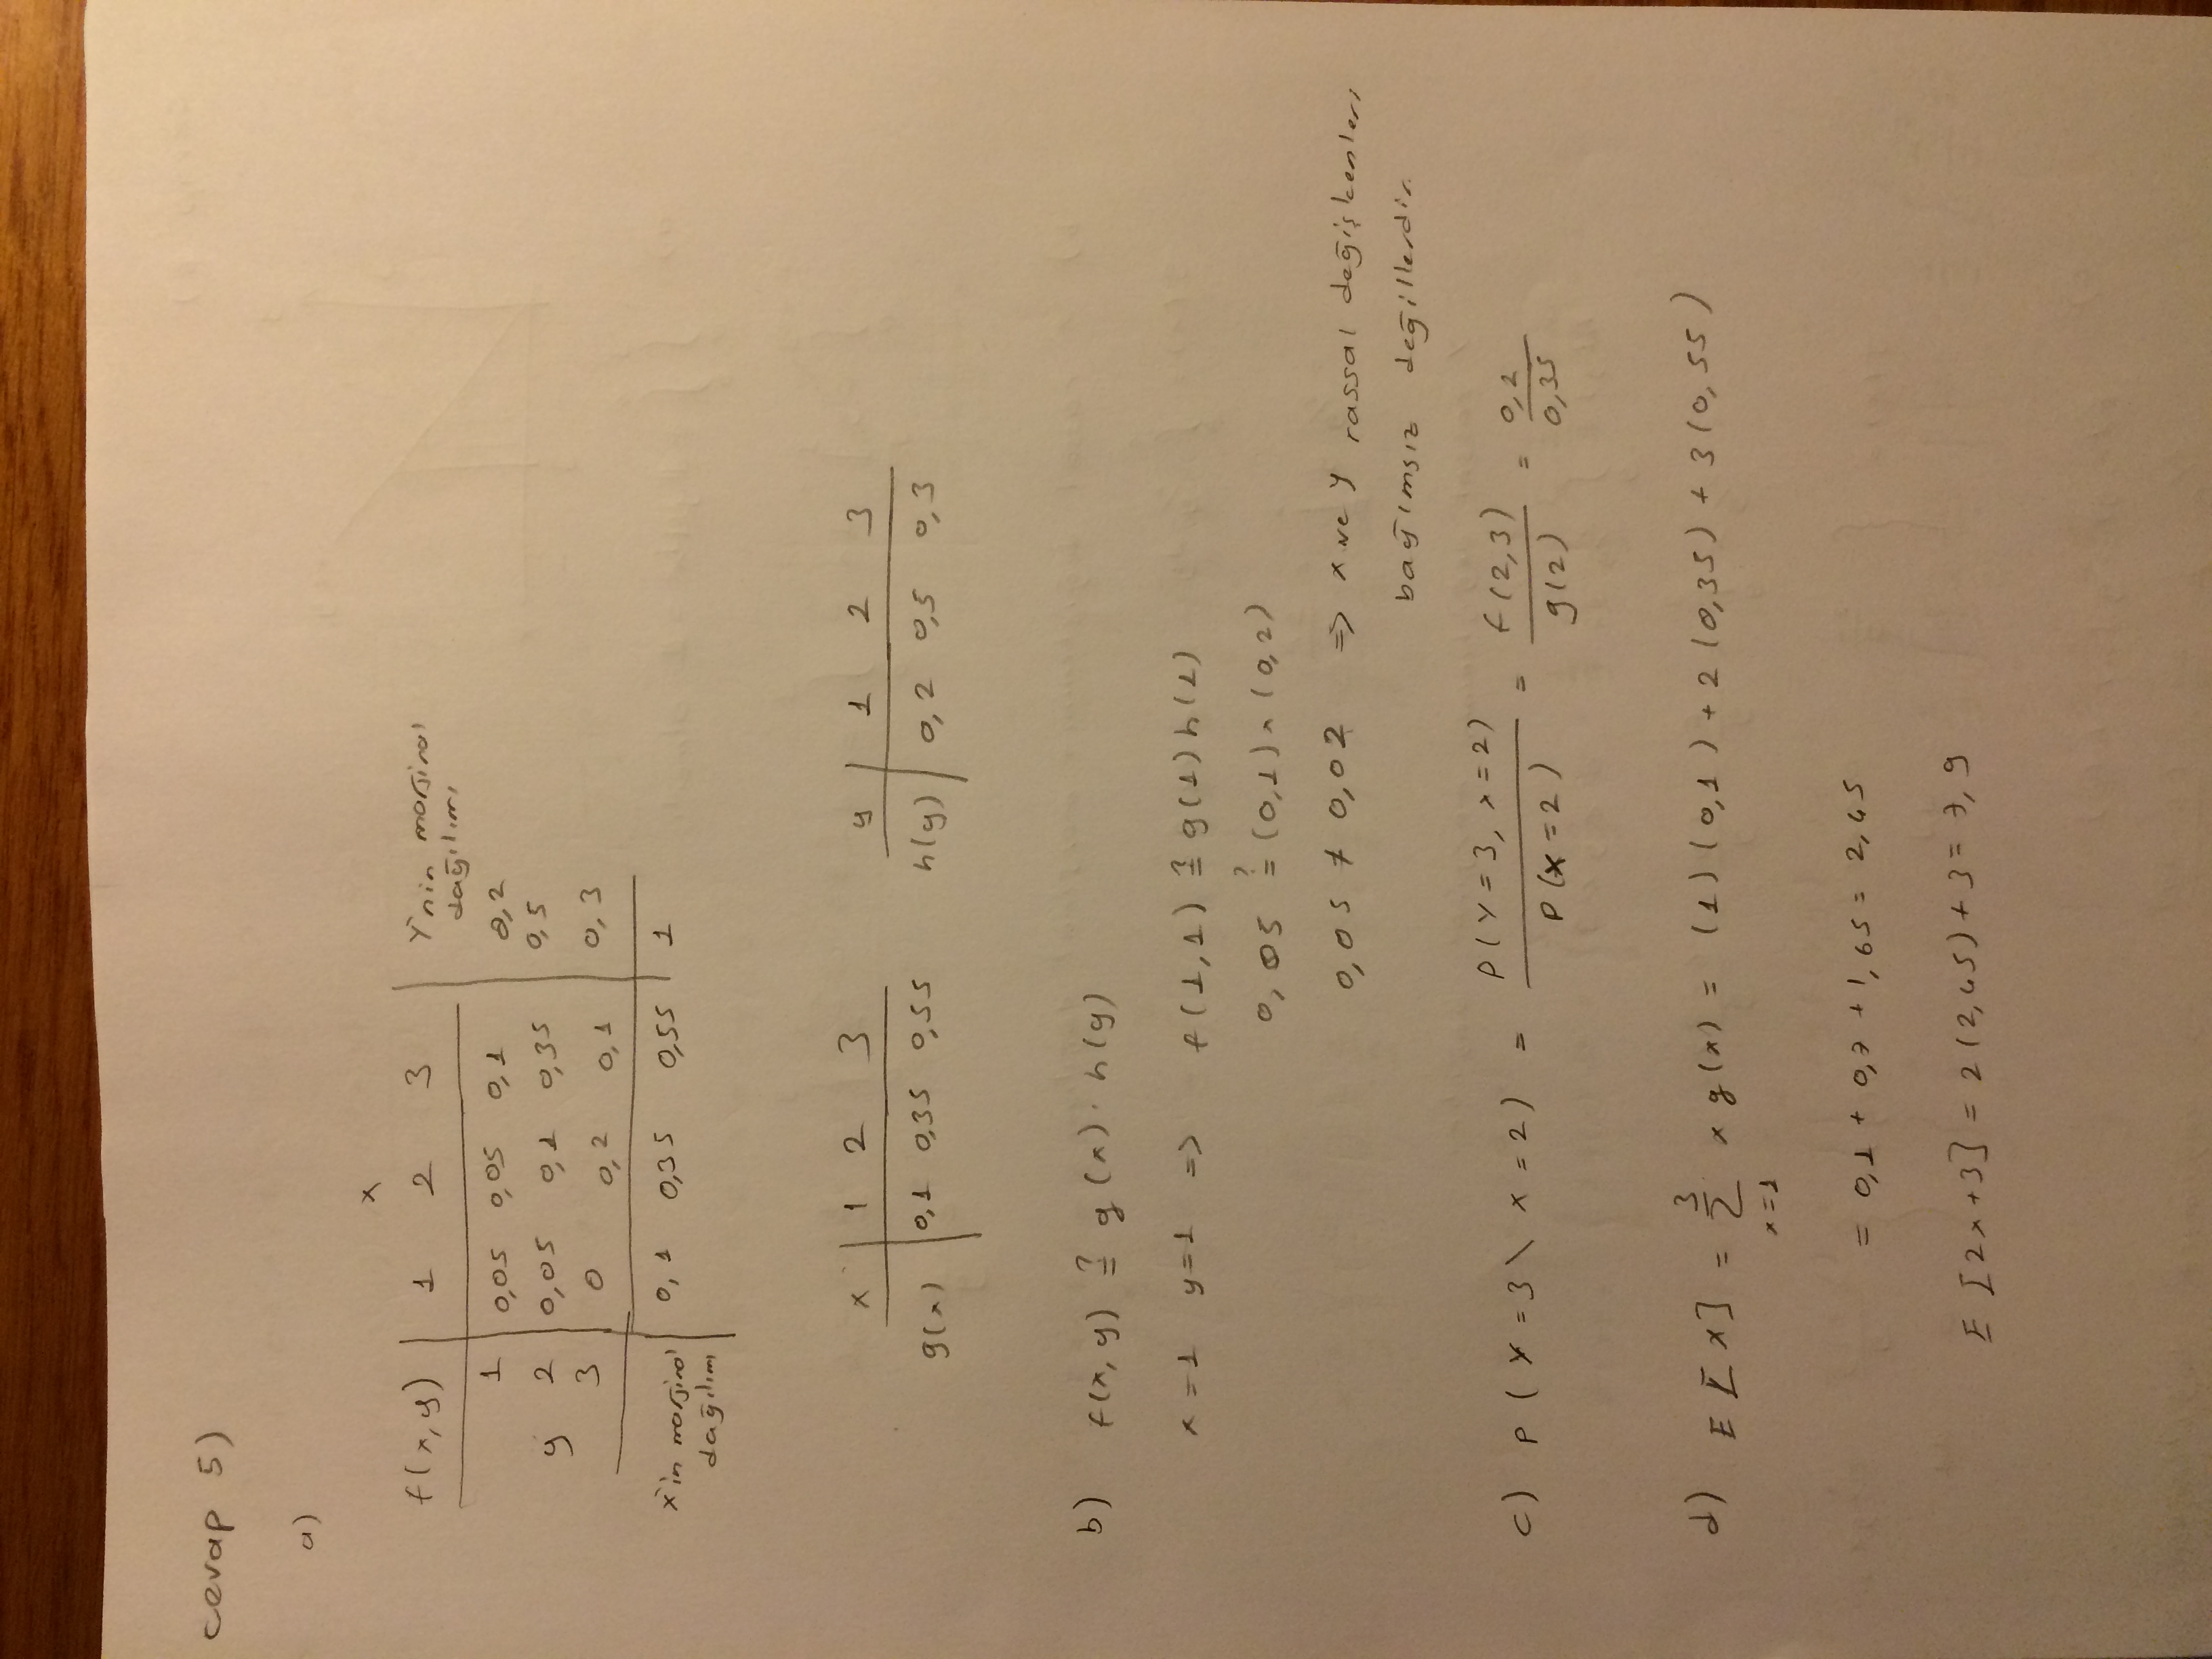 cevap 5)
a)
x
f(x,y) 1 2 3 Y'nin marjinal
dağılımı
1 0,05 0,05 0,1 0,2
y 2 0,05 0,1 0,35 0,5
3 0 0,2 0,1 0,3
x'in marjinal 0,1 0,35 0,55 1
dağılımı
x 1 2 3 y 1 2 3
g(x) 0,1 0,35 0,55 h(y) 0,2 0,5 0,3
b) f(x,y) ≟ g(x) · h(y)
x=1 y=1 => f(1,1) ≟ g(1) h(1)
0,05 ≟ (0,1) x (0,2)
0,05 ≠ 0,02 => x ve y rassal değişkenleri
bağımsız değillerdir.
c) P(Y=3 \ x=2) = P(Y=3, x=2) / P(X=2) = f(2,3) / g(2) = 0,2 / 0,35
3
d) E[x] = Σ x g(x) = (1)(0,1) + 2(0,35) + 3(0,55)
x=1
= 0,1 + 0,7 + 1,65 = 2,45
E[2x+3] = 2(2,45)+3 = 7,9